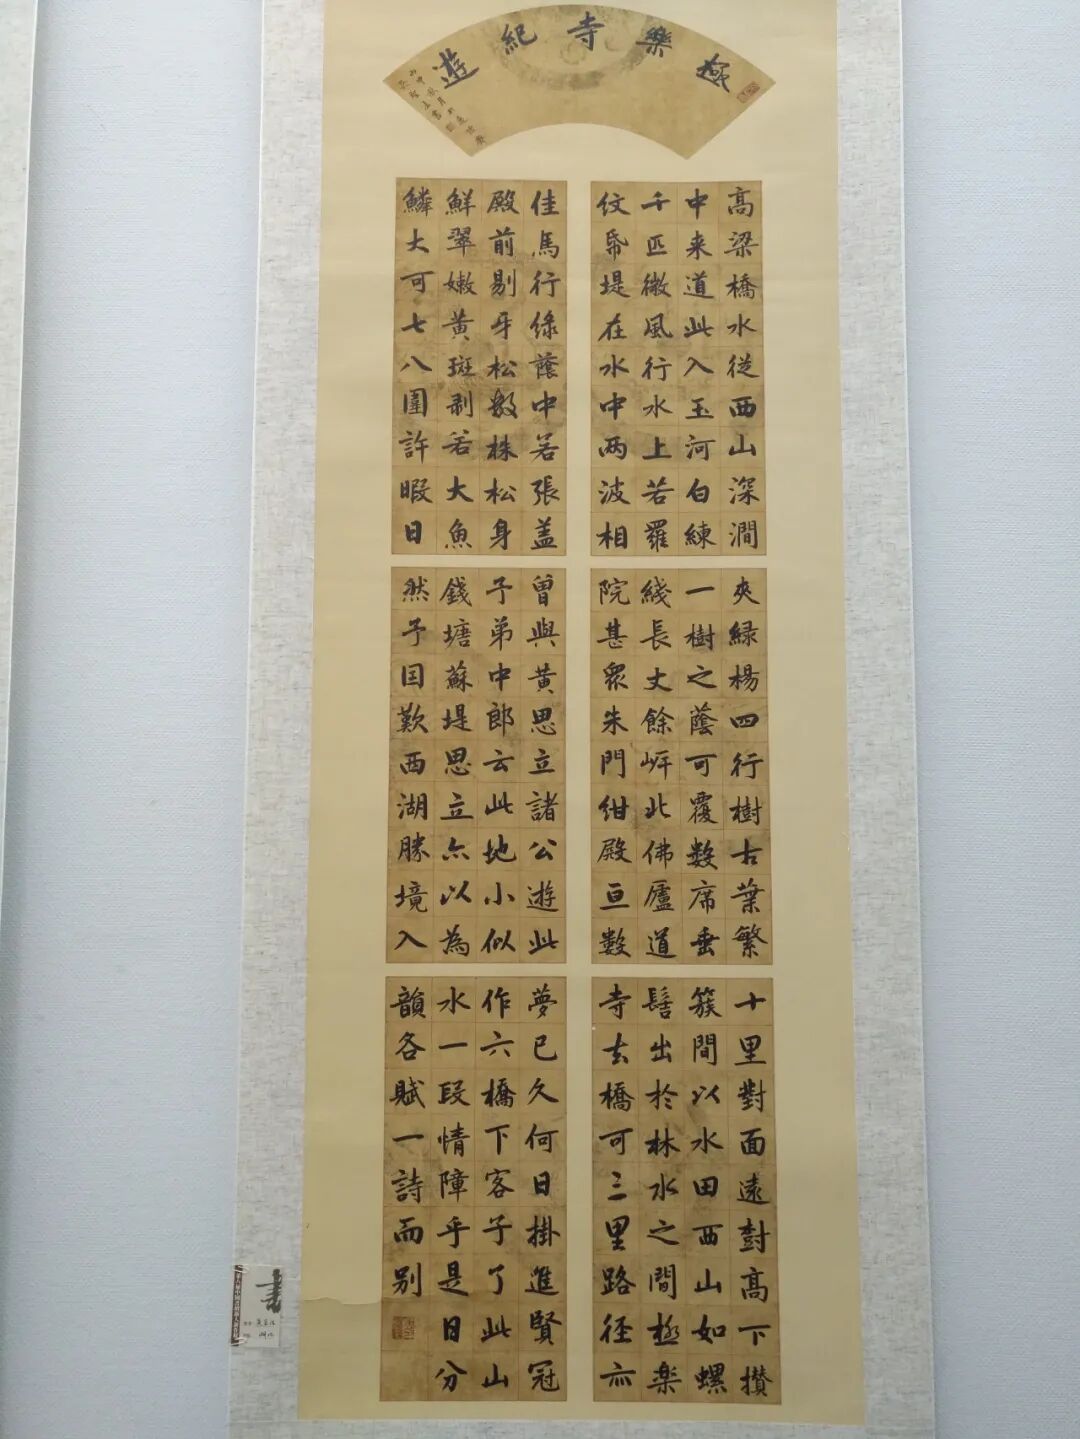 極樂寺紀遊
高梁橋水從西山深澗
中来道此入玉河白練
千匹微風行水上若羅
紋帋堤在水中两波相
夾緑楊四行樹古葉繁
一樹之蔭可覆數席垂
綫長丈餘岸北佛廬道
院甚衆朱門紺殿亘數
十里對面遠尌高下攢
簇間以水田西山如螺
髻出於林水之間極楽
寺去橋可三里路徑亦
佳馬行緑蔭中若張盖
殿前剔牙松數株松身
鮮翠嫩黄斑剥若大魚
鱗大可七八圍許暇日
曾與黄思立諸公遊此
予弟中郎云此地小似
錢塘蘇堤思立亦以為
然予因歎西湖勝境入
夢已久何日掛進賢冠
作六橋下客子了此山
水一段情障乎是日分
韻各賦一詩而别
書